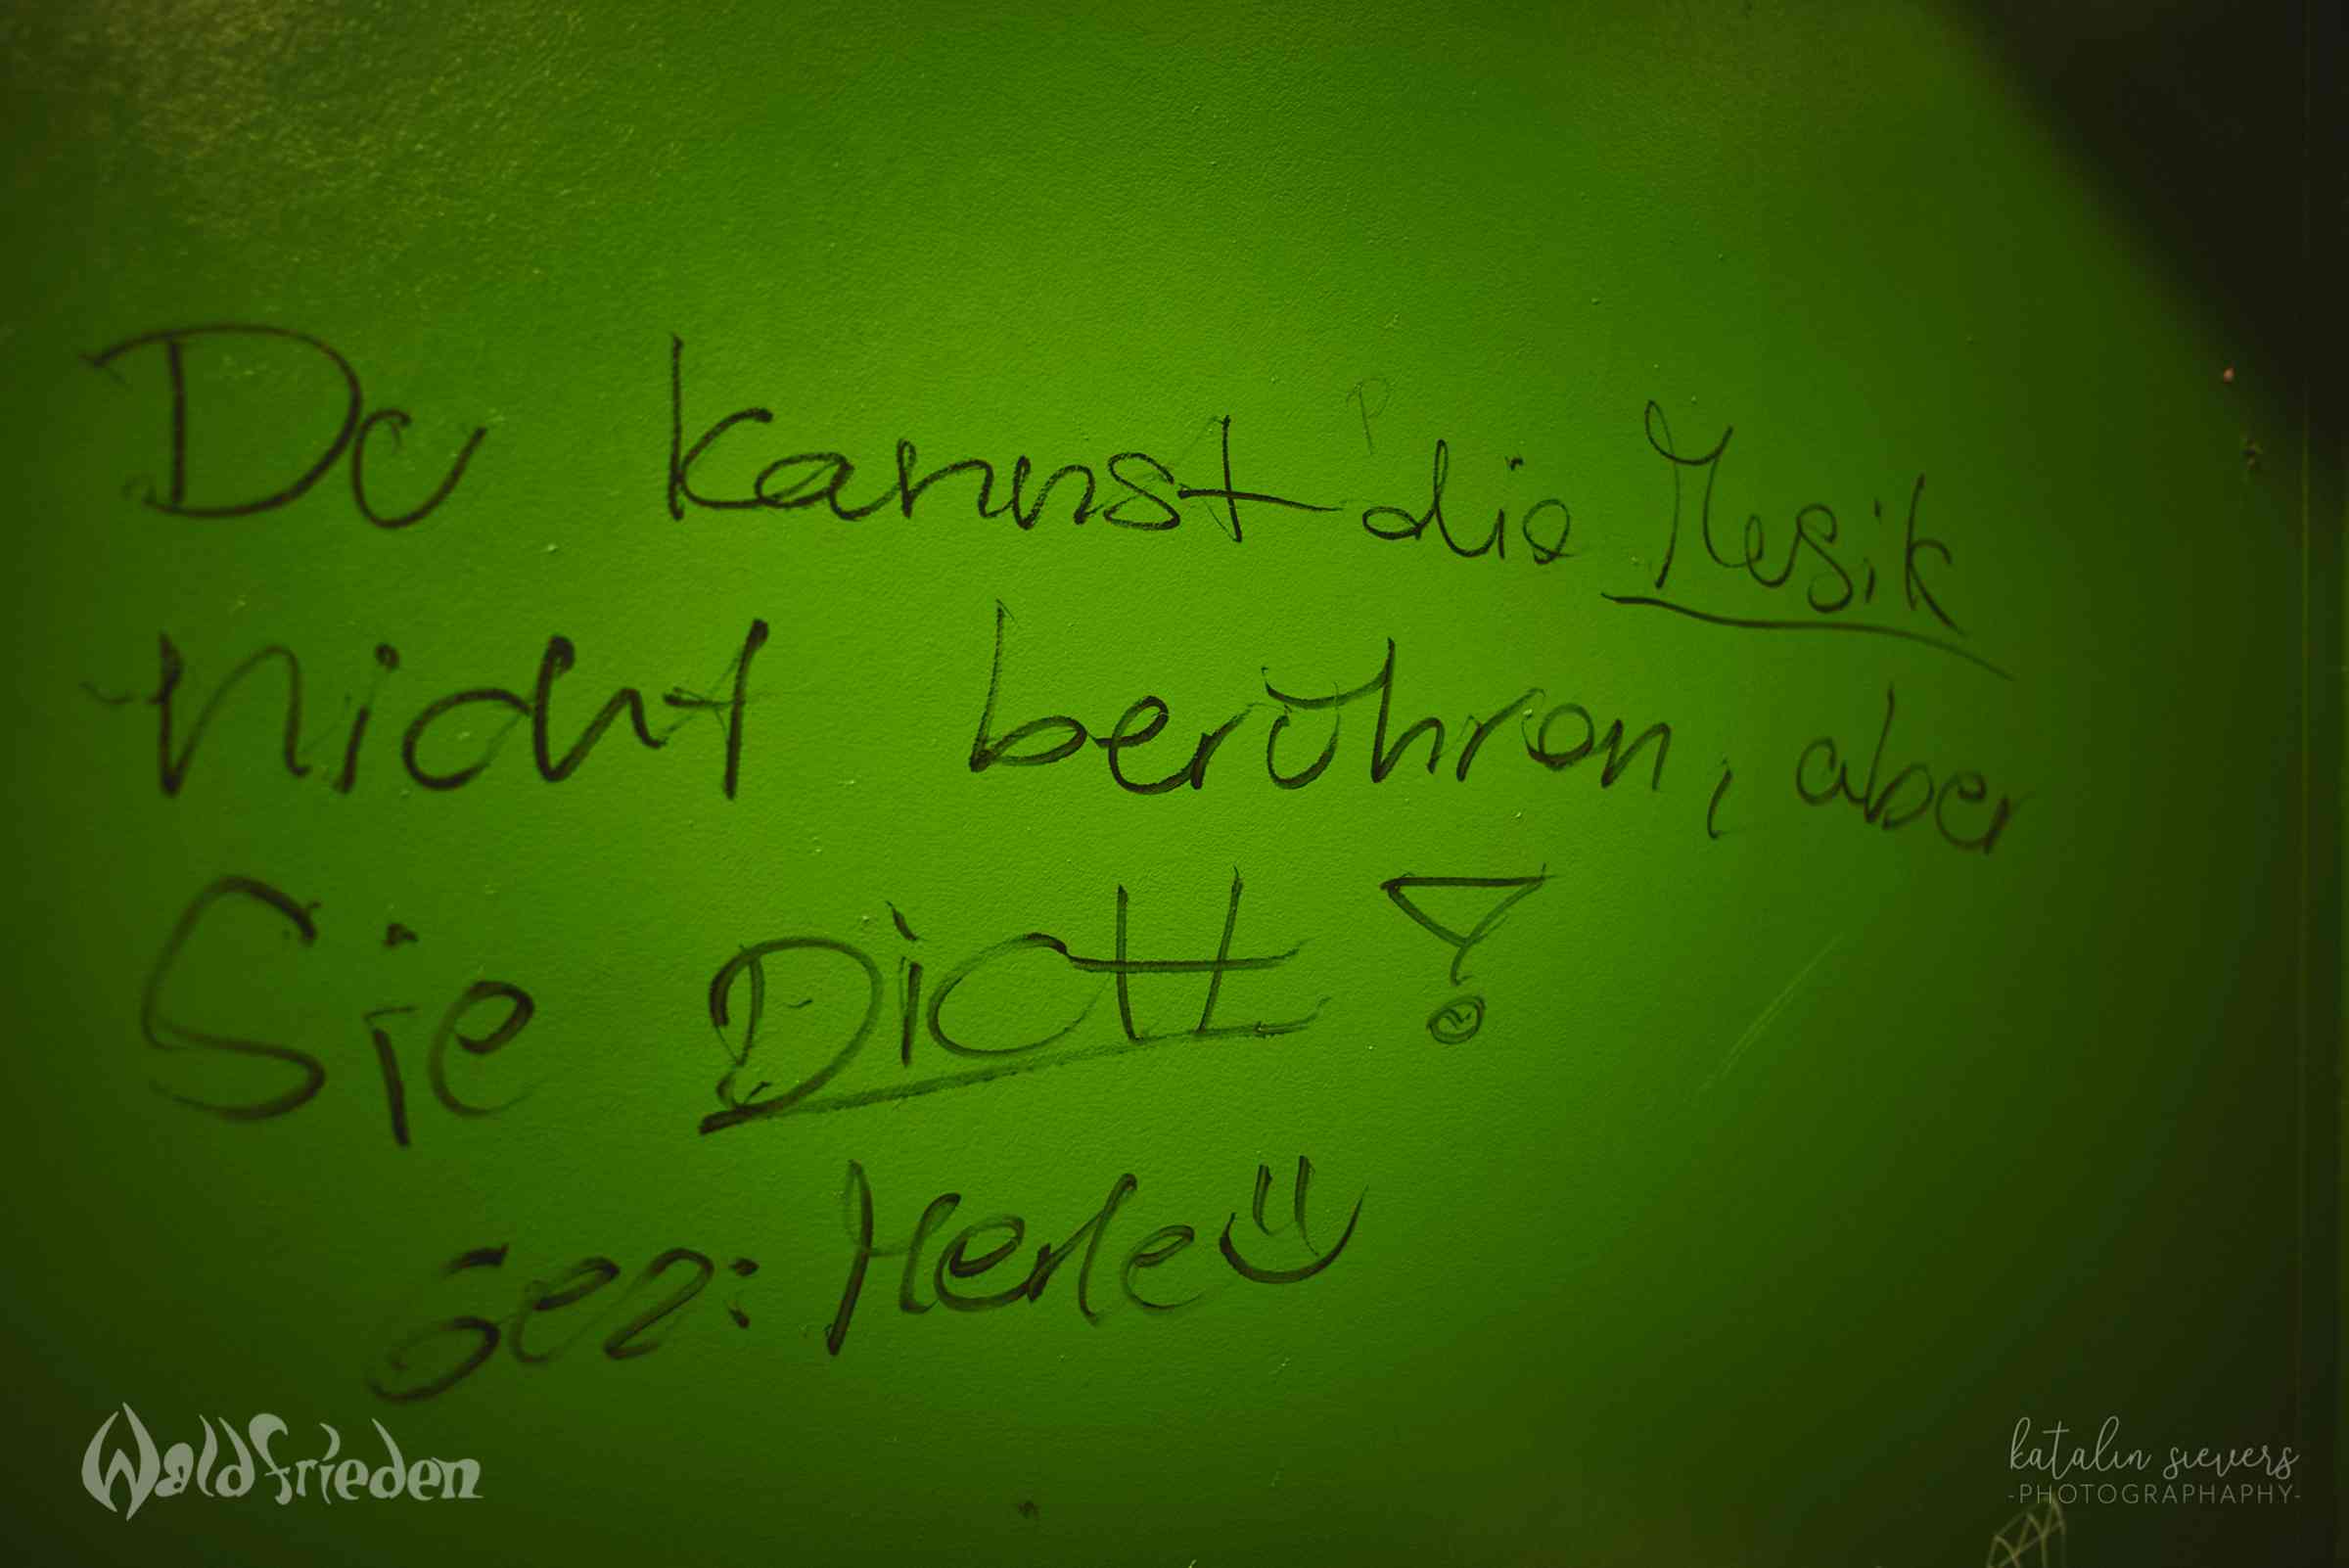 Du kannst die Musik
nicht berühren, aber
Sie DICH!
gez: Merle
Waldfrieden
katalin sievers
-PHOTOGRAPHAPHY-